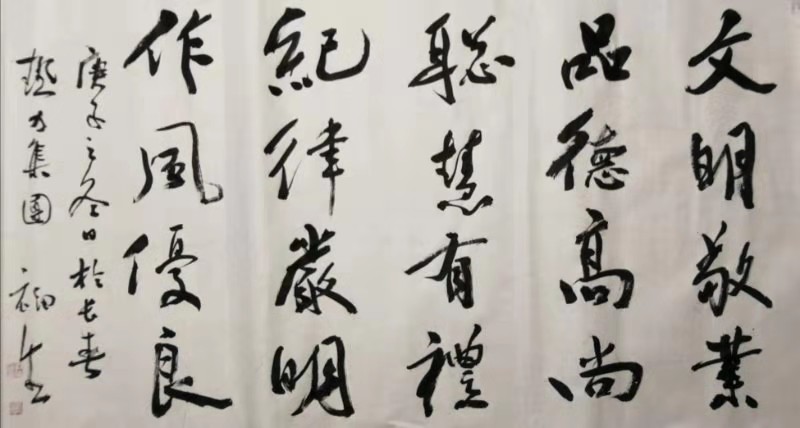 文明敬業
品德高尚
聡慧有禮
紀律嚴明
作風優良
庚子之冬日於长春
懋力集團